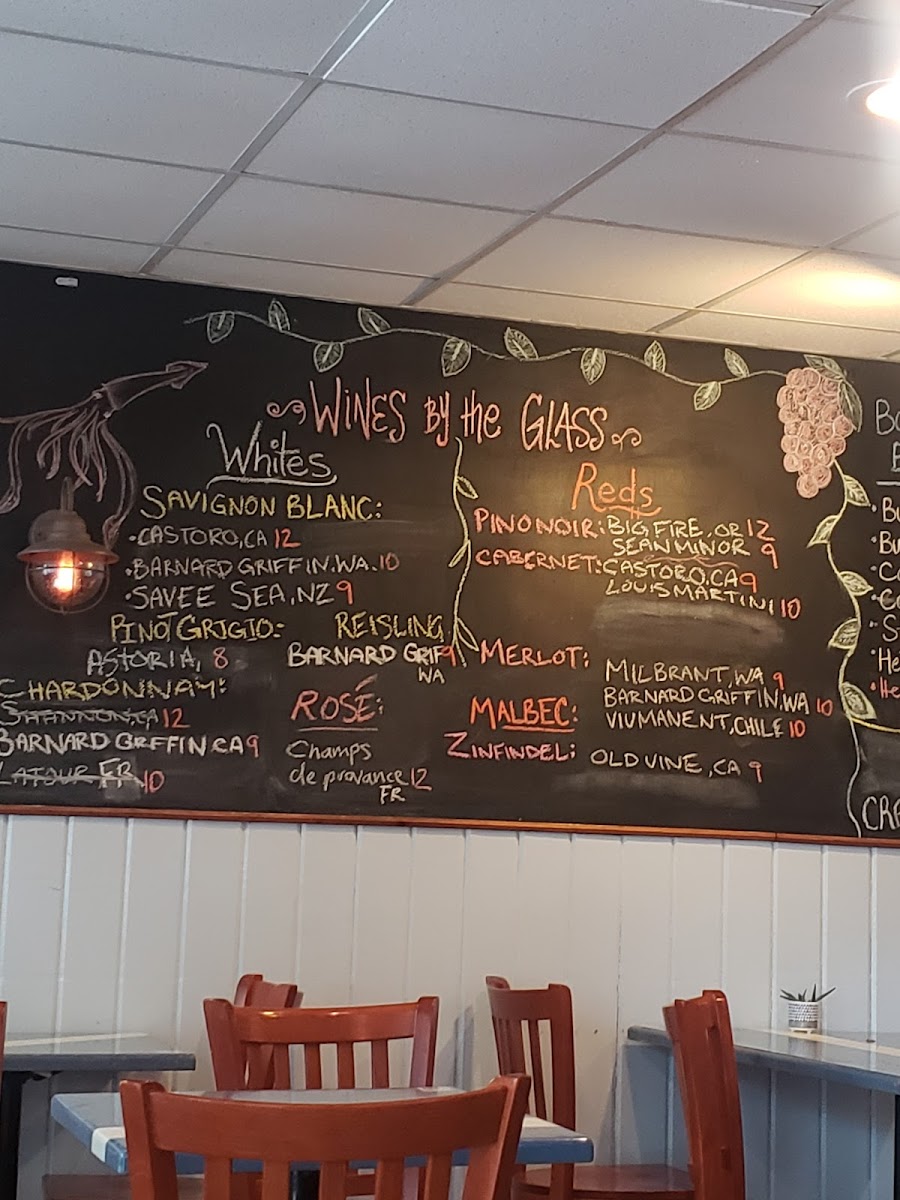 WINES BY the GLASS
Whites
SAVIGNON BLANC:
·CASTORO, CA 12
·BARNARD GRIFFIN. WA. 10
·SAVEE SEA, NZ 9
PINOT GRIGIO:-
ASTORIA, 8
REISLING
BARNARD GRIF 9
WA
CHARDONNAY:
SHANNON, CA 12
BARNARD GRFFIN CA 9
LATOUR FR 10
ROSÉ:
Champs
de provance 12
FR
Reds
PINO NOIR: BIG FIRE, OR 12
SEAN MINOR 9
CABERNET: CASTORO, CA 9
LOUIS MARTINI 10
MERLOT:
MILBRANT, WA 9
BARNARD GRIFFIN. WA 10
MALBEC:
VIU MANENT, CHILE 10
ZINFINDEL: OLD VINE, CA 9